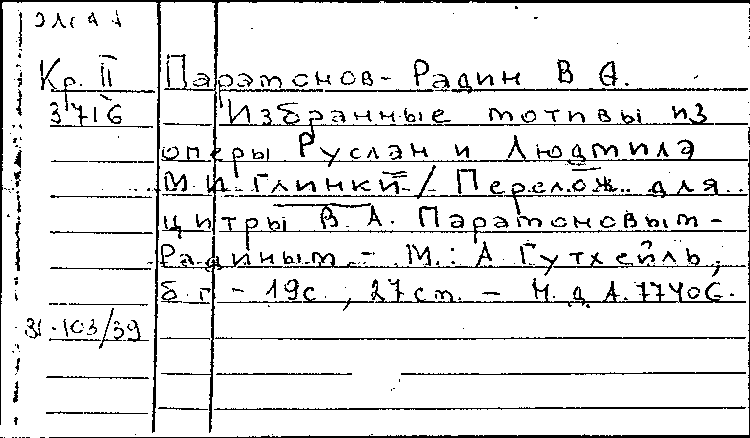 Кр. II Паратонов-Радин В А.
3716 Избранные мотивы из
оперы Руслан и Людмила
М.И. Глинки / Перелож. для
цитры В. А. Паратоновым-
Радиным. - М.: А Гутхейль,
б.г - 19с., 27cm. - Н.д. А.7740G.
31-103/39